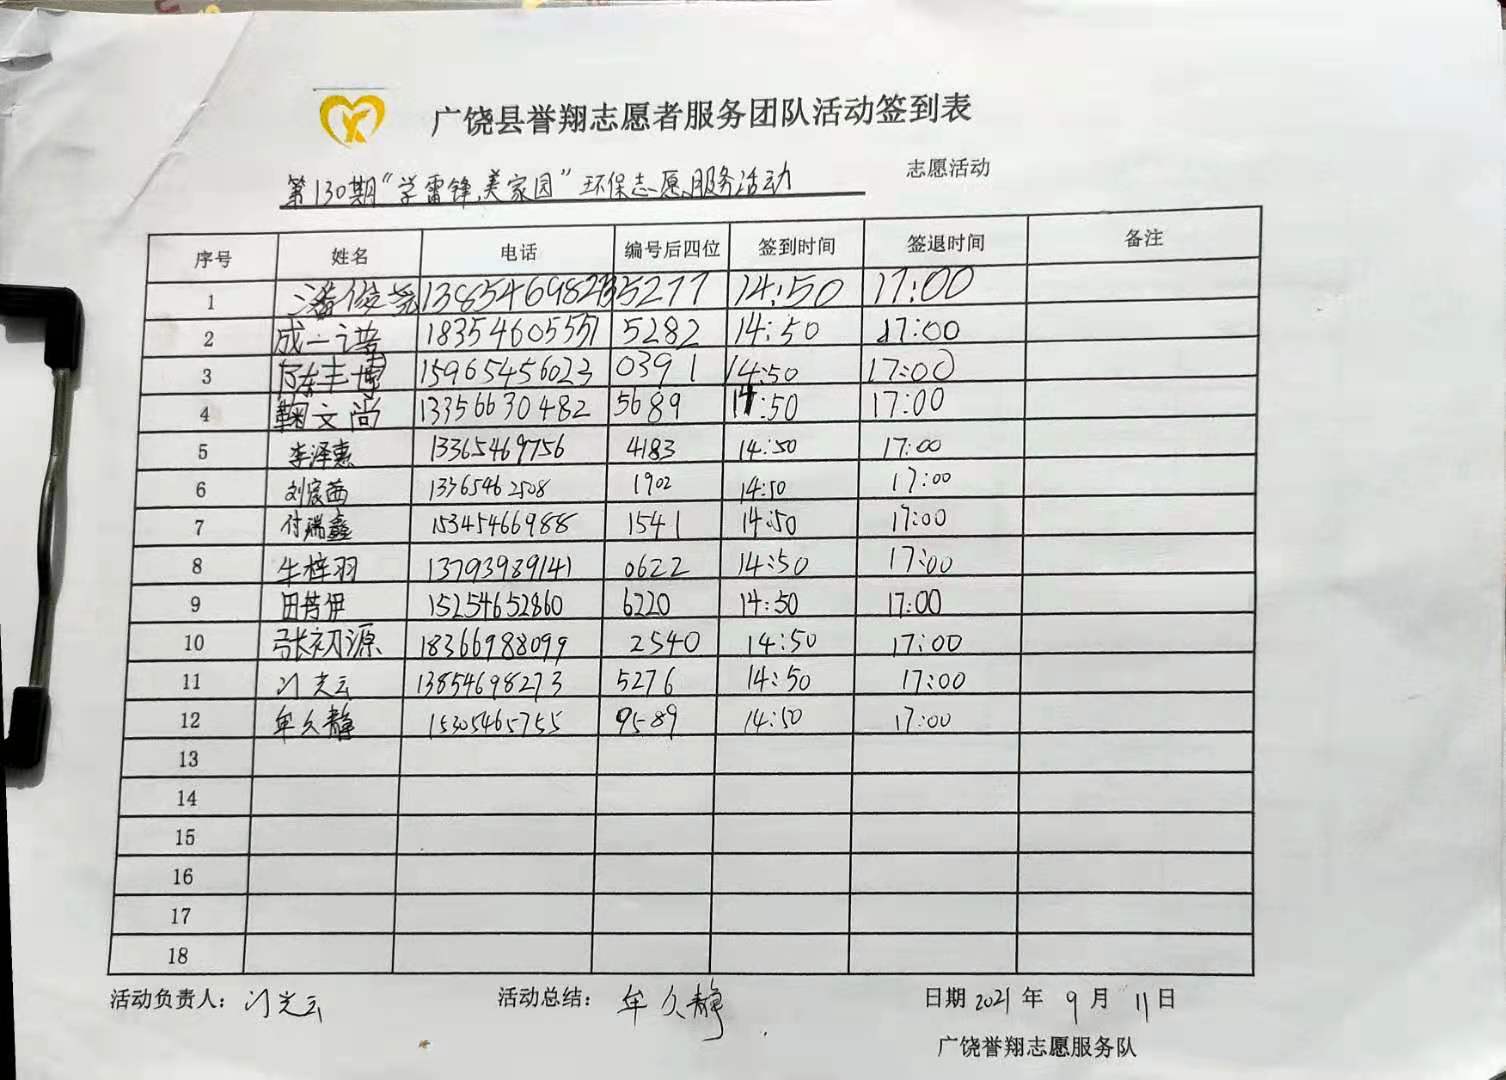 广饶县誉翔志愿者服务团队活动签到表
第130期“学雷锋、美家园”环保志愿服务活动 志愿活动
序号 姓名 电话 编号后四位 签到时间 签退时间 备注
1 潘俊尧 13854698273 5277 14:50 17:00
2 成一谱 18354605557 5282 14:50 17:00
3 陈丰博 15965456023 0391 14:50 17:00
4 鞠文尚 13356630482 5689 14:50 17:00
5 李泽惠 13365469756 4183 14:50 17:00
6 刘宸茜 13365462508 1902 14:50 17:00
7 付瑞鑫 15345466988 1541 14:50 17:00
8 牛梓羽 13793989141 0622 14:50 17:00
9 田芮伊 15254652860 6220 14:50 17:00
10 张初源 18366988099 2540 14:50 17:00
11 门光云 13854698273 5276 14:50 17:00
12 牟久静 15305465755 9589 14:50 17:00
13
14
15
16
17
18
活动负责人: 门光云 活动总结: 牟久静 日期 2021 年 9 月 11 日
广饶誉翔志愿服务队